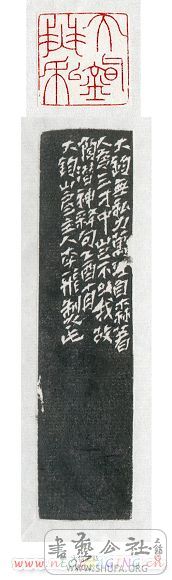 大鈞無私
大鈞無私力萬理自森著
人為三才中豈不以我故
陶潛神釋句乙酉
大鈞山房主人李飛製此
書藝公社
WWW.SHUFA.ORG